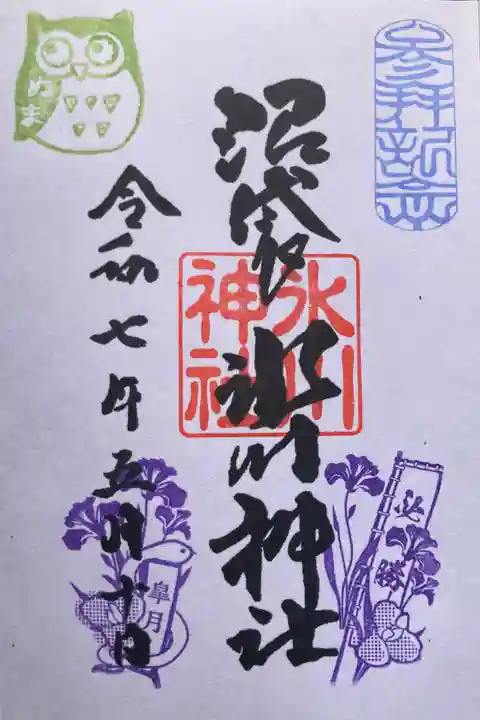 参拝記念
沼袋
氷川神社
氷川
神社
令和七年五月十日
ぬま
必勝
皐月